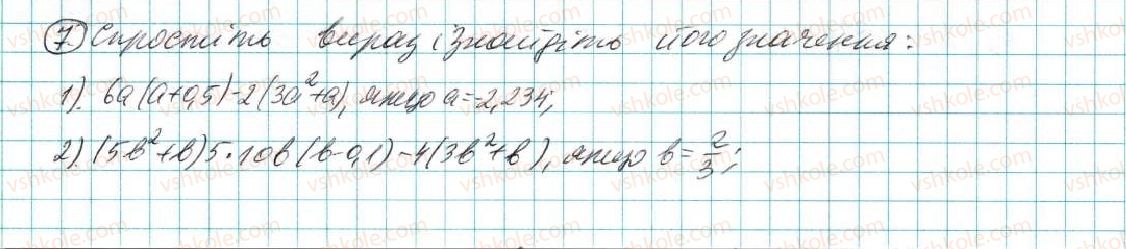 7. Спростіть вираз і знайдіть його значення:
1). 6a(a+0,5)-2(3a²+a), якщо a=-2,234;
2). (5b²+b)5·10b(b-0,1)-4(3b²+b), якщо b=2/3;
vshkole.com